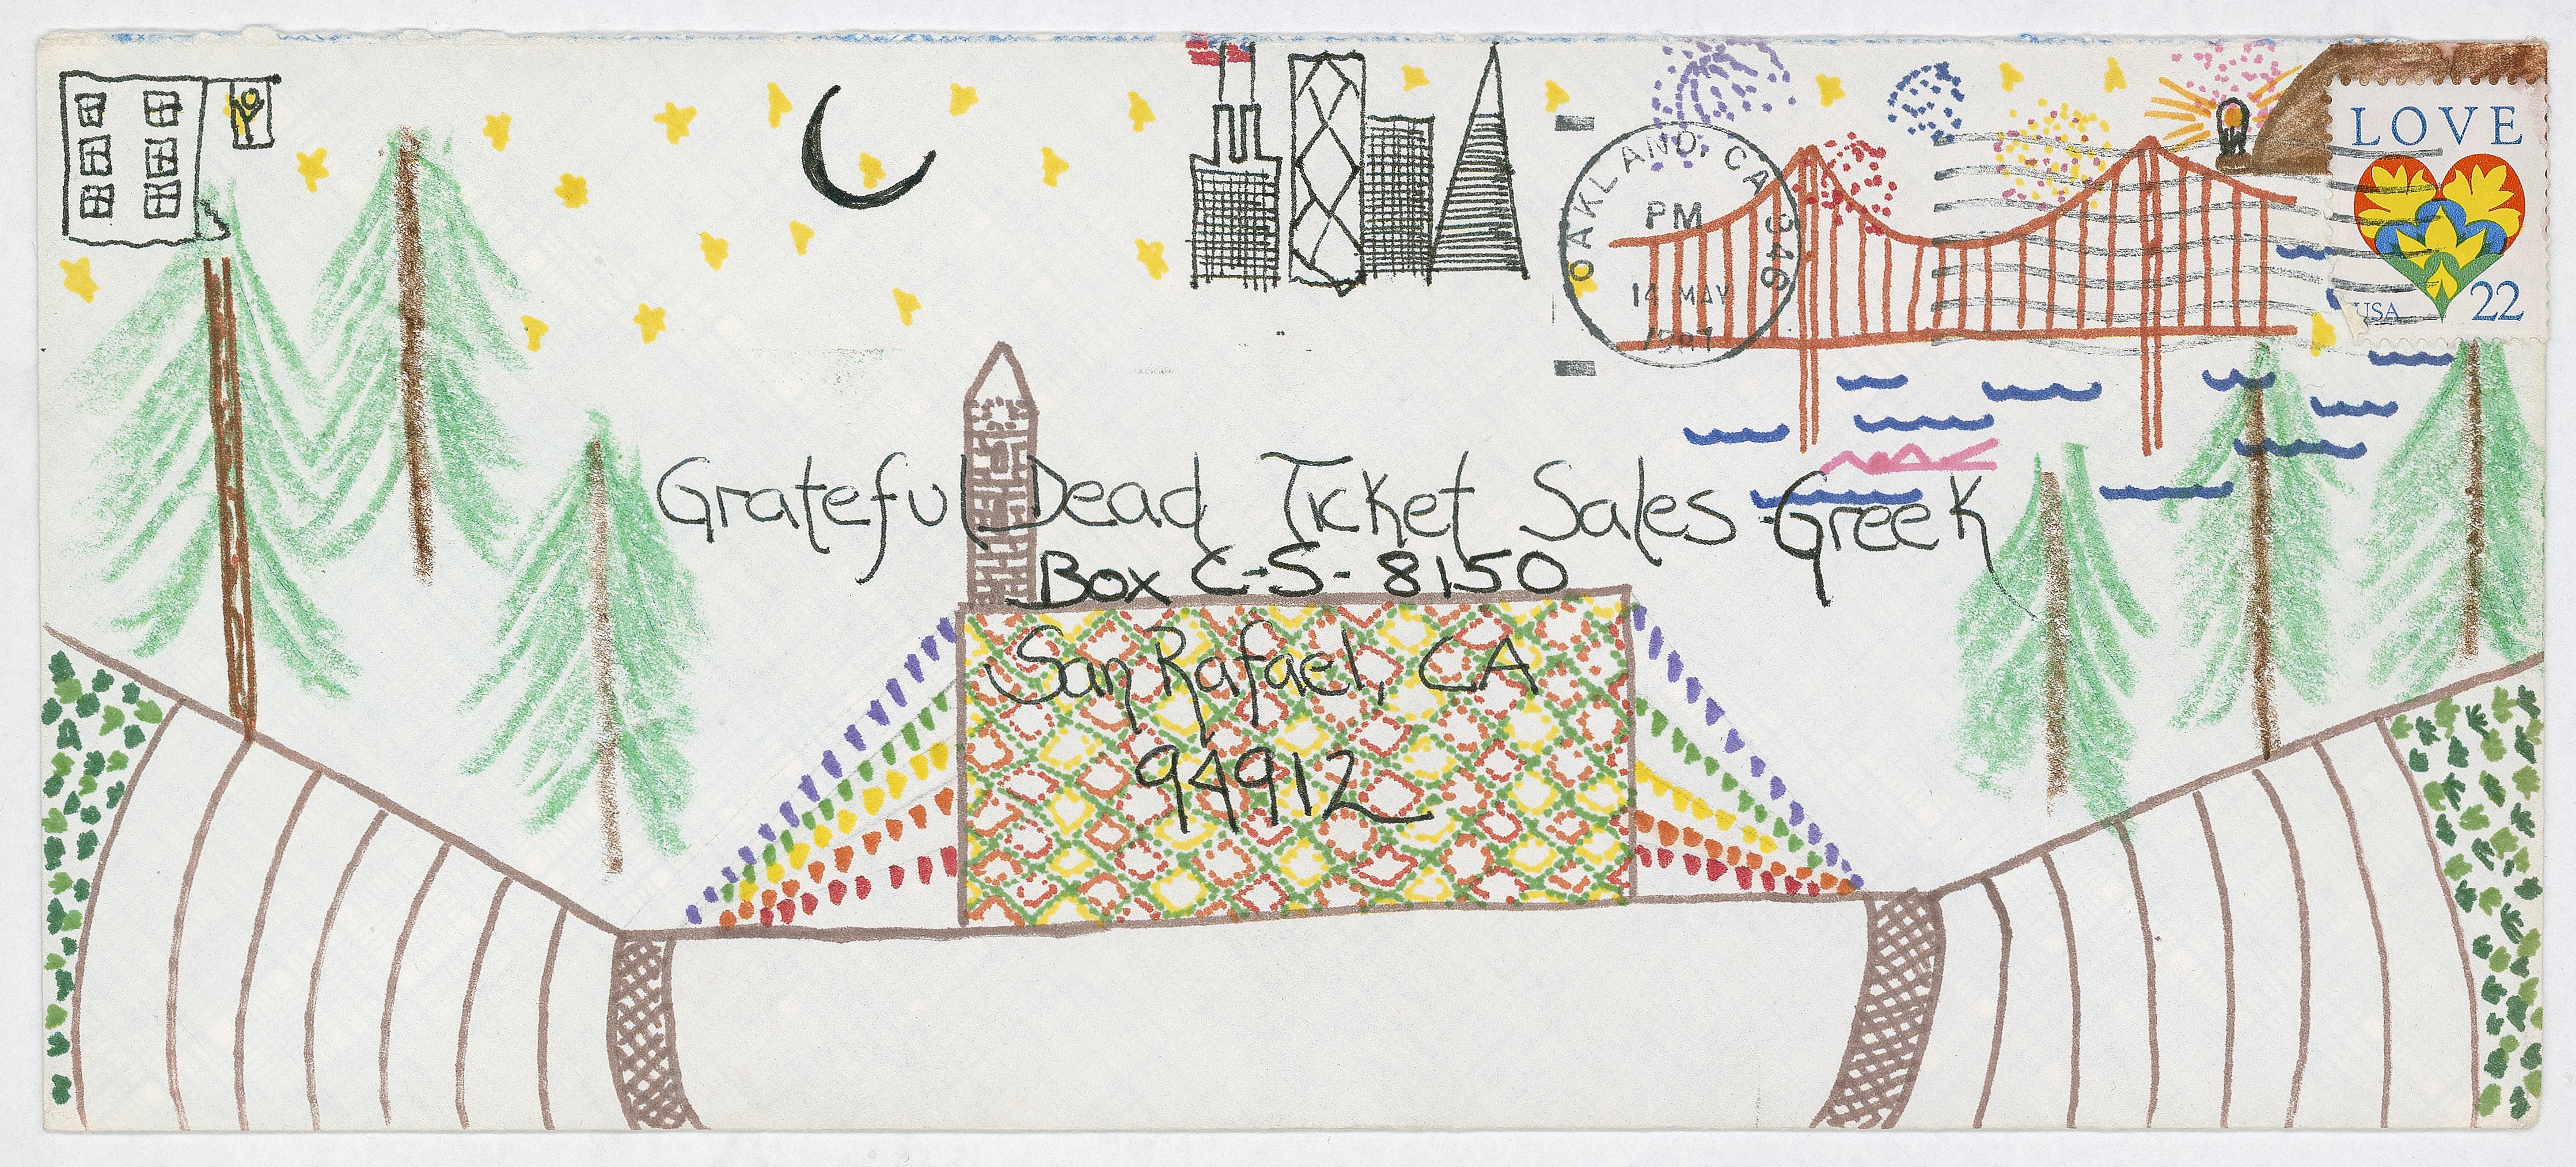 LOVE
USA 22
OAKLAND, CA 946
PM
14 MAY
Grateful Dead Ticket Sales-Greek
Box C-S-8150
San Rafael, CA
94912